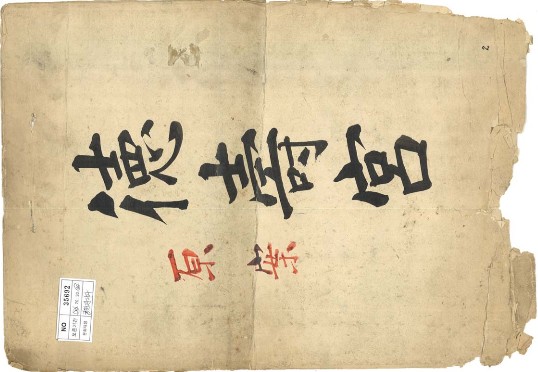 德壽宮
原案
NO 35692